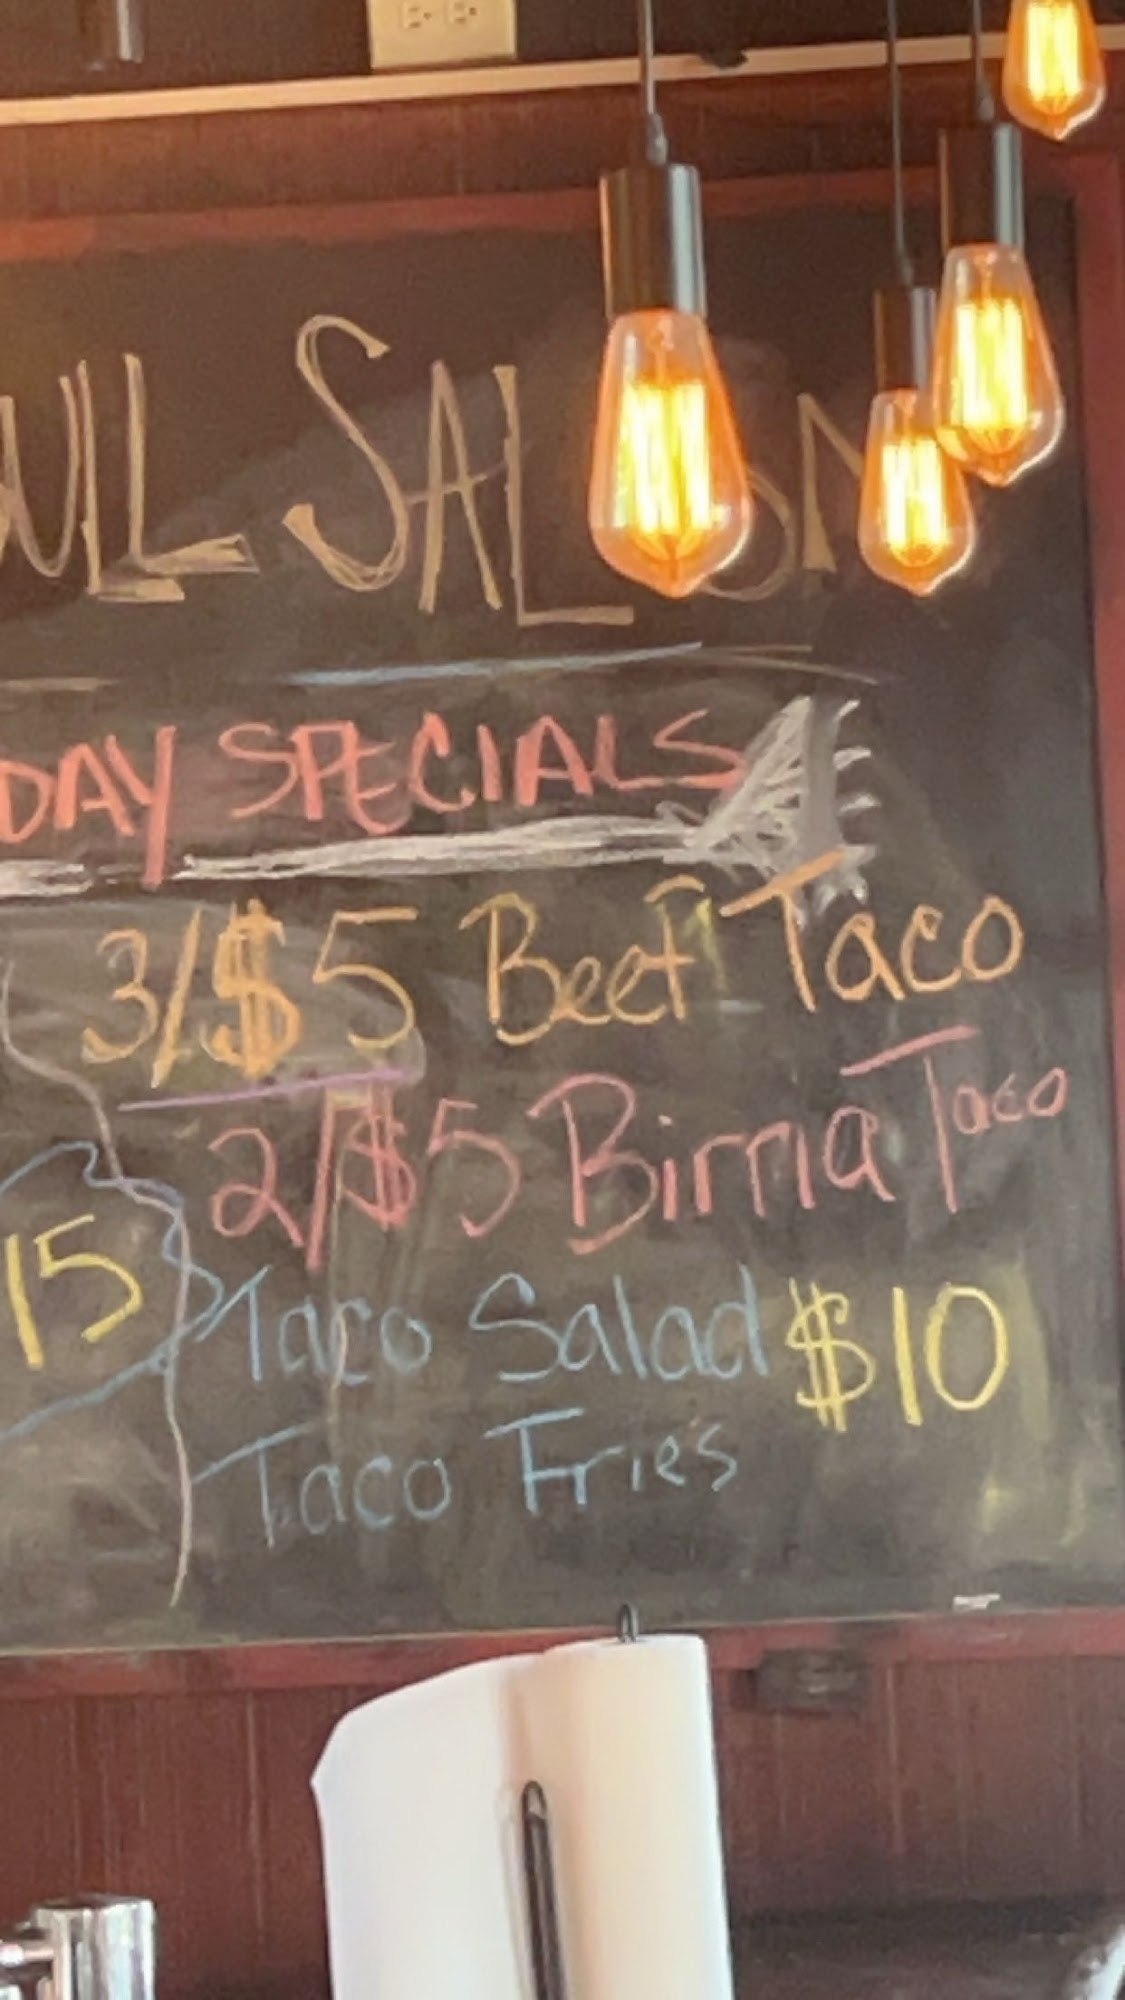 ULL SALOON
DAY SPECIALS
3/$5 Beef Taco
2/$5 Birria Taco
15
Taco Salad $10
Taco Fries